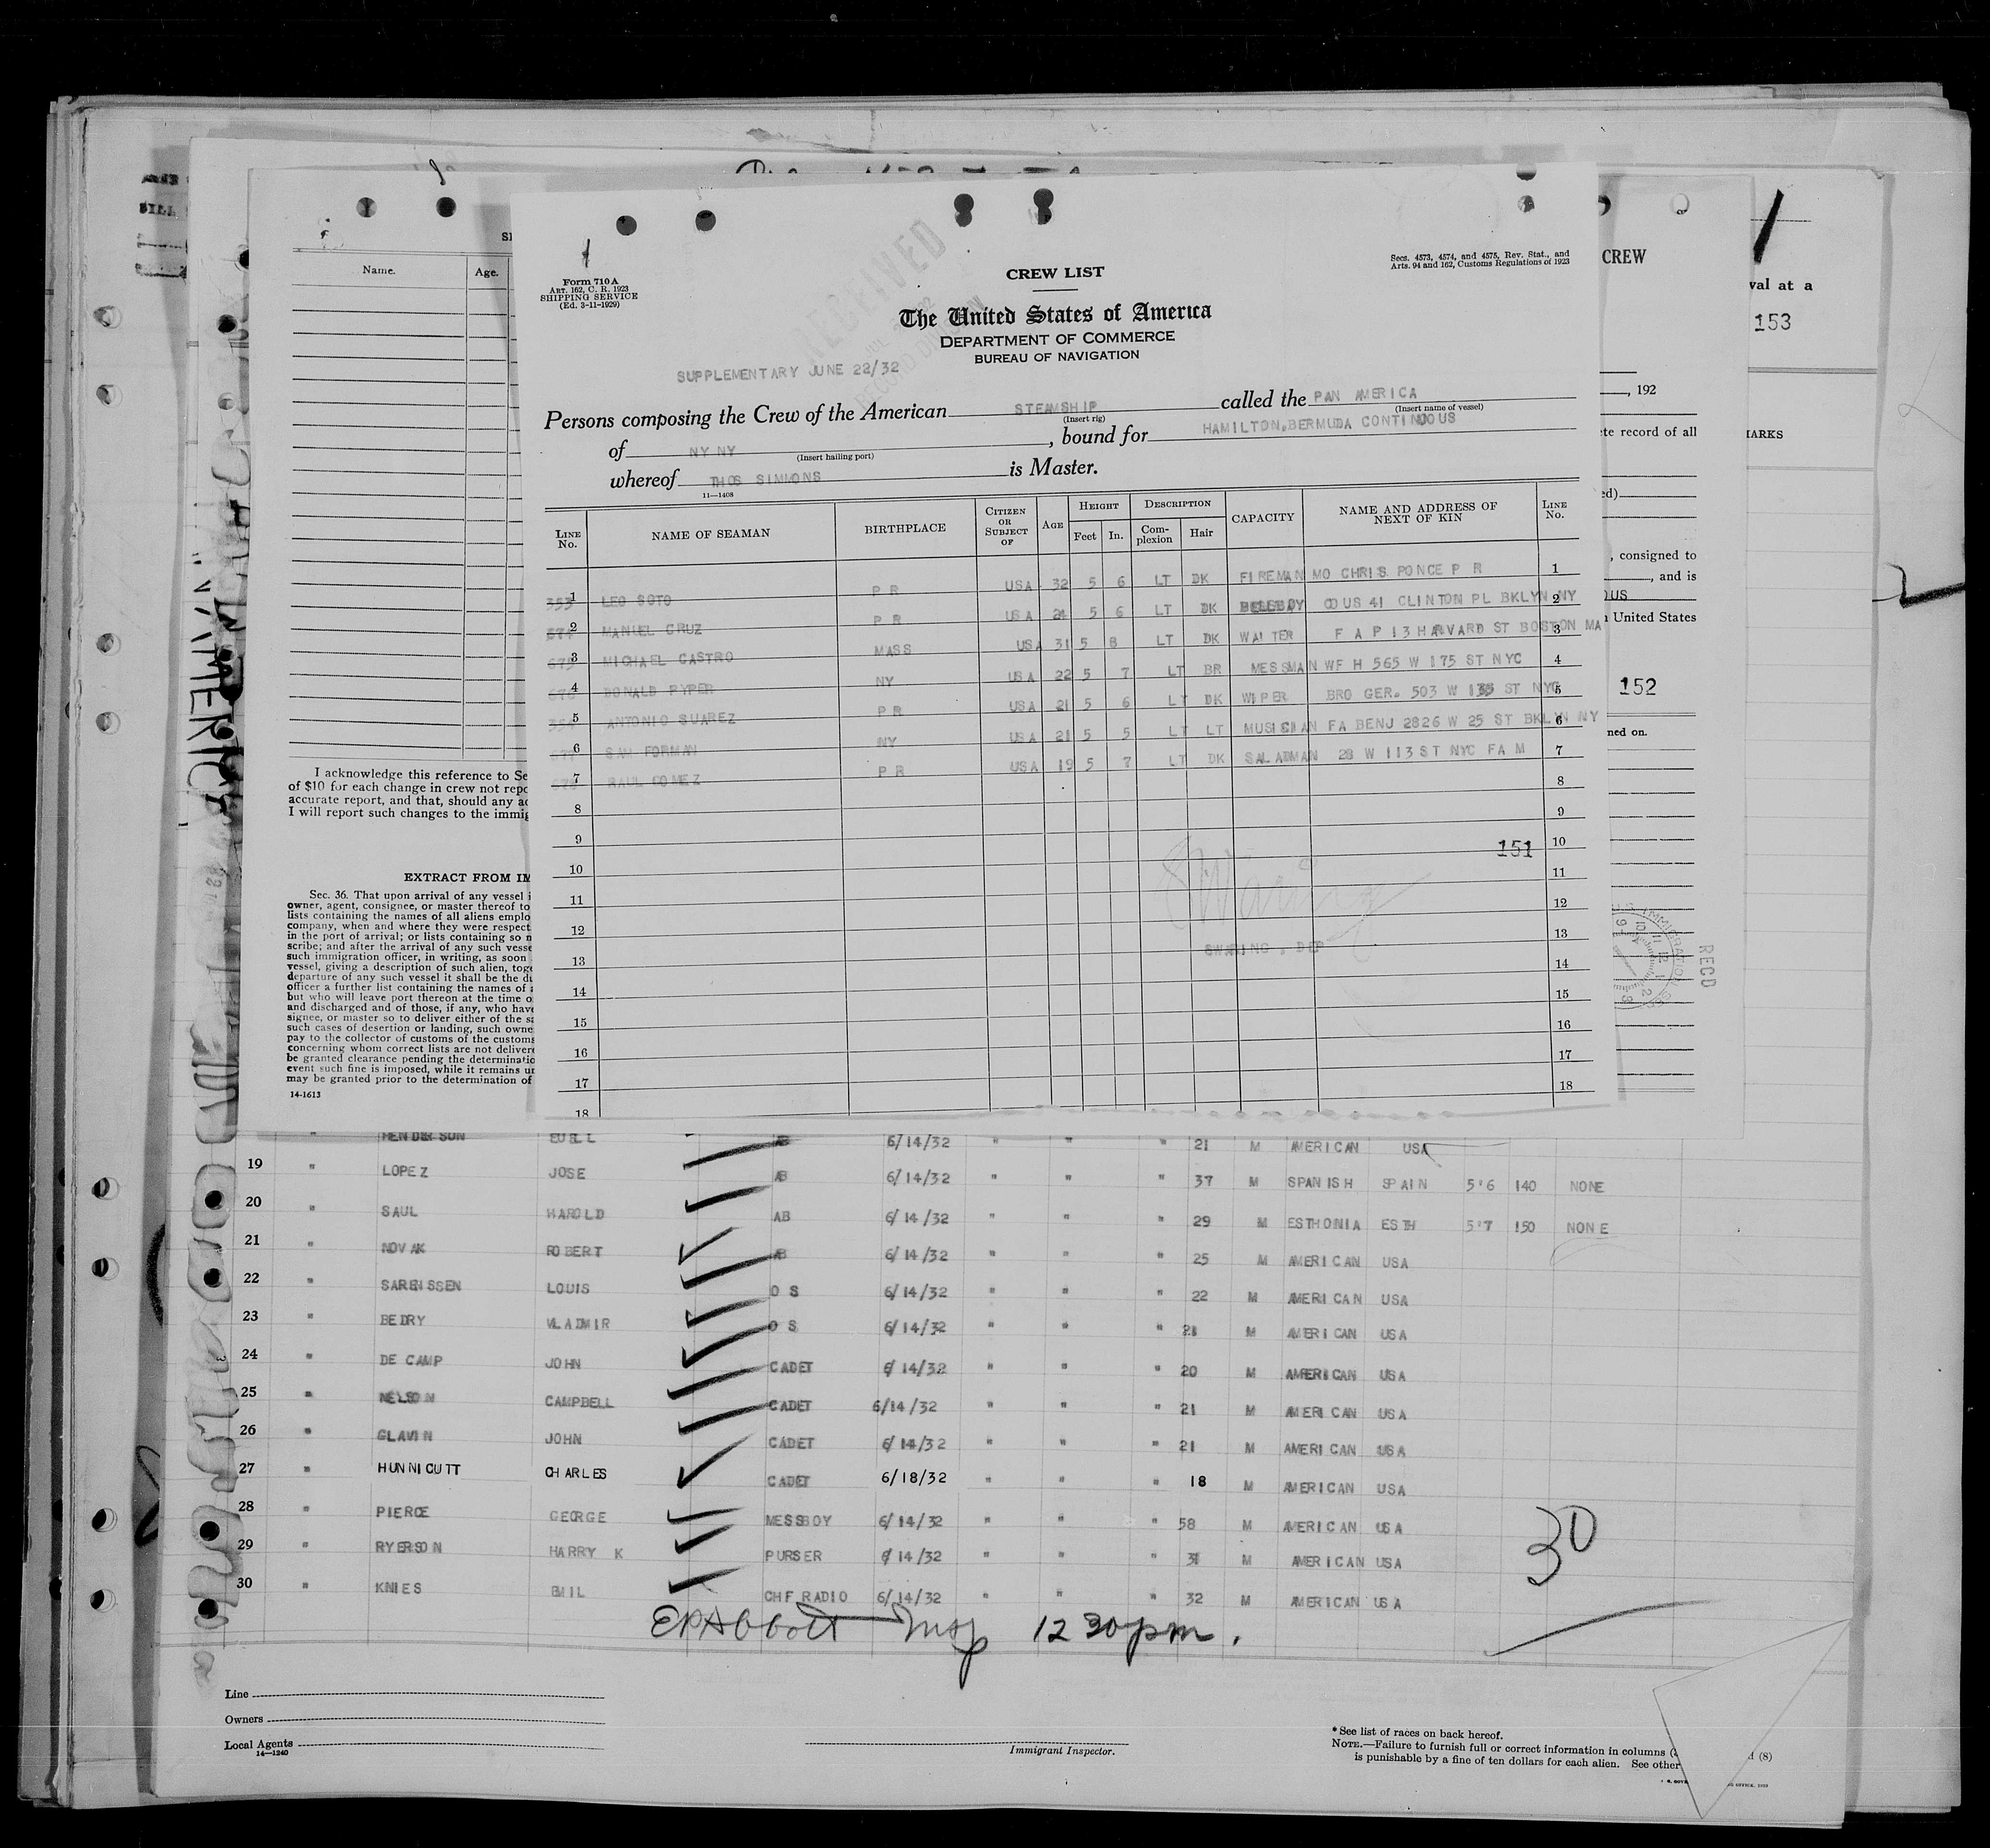 Form 710A
ART. 162, C. R. 1923
SHIPPING SERVICE
(Ed. 3-11-1929)
Secs. 4573, 4574, and 4575, Rev. Stat., and
Arts. 94 and 162, Customs Regulations of 1923
CREW LIST
The United States of America
DEPARTMENT OF COMMERCE
BUREAU OF NAVIGATION
RECEIVED
SUPPLEMENTARY JUNE 22/32
Persons composing the Crew of the American STEAMSHIP called the PAN AMERICA
(Insert rig) (Insert name of vessel)
of NY NY, bound for HAMILTON, BERMUDA CONTINOOUS
(Insert hailing port)
whereof THOS SIMMONS is Master.
11—1408
LINE No. NAME OF SEAMAN BIRTHPLACE CITIZEN OR SUBJECT OF AGE HEIGHT Feet In. DESCRIPTION Complexion Hair CAPACITY NAME AND ADDRESS OF NEXT OF KIN LINE No.
353 1 LEO SOTO P R USA 32 5 6 LT DK FIREMAN MO CHRIS PONCE P R 1
2 MANUEL CRUZ P R USA 24 5 6 LT DK COUS 41 CLINTON PL BKLYN NY 2
3 MICHAEL CASTRO MASS USA 31 5 8 LT DK WAITER F A P 13 HARVARD ST BOSTON MA 3
4 DONALD PYPER NY USA 22 5 7 LT BR MESSMAN WF H 565 W 175 ST NYC 4
5 ANTONIO SUAREZ P R USA 21 5 6 LT DK WIPER BRO GER. 503 W ST NYC 5
6 SAM FORMAN NY USA 21 5 5 LT LT MUSICIAN FA BENJ 2826 W 25 ST BKLYN NY 6
7 RAUL GOMEZ P R USA 19 5 7 LT DK SALADMAN 28 W 113 ST NYC FA M 7
8 8
9 9
10 151 10
11 11
12 12
13 13
14 14
15 15
16 16
17 17
18 18
S Waring
SWARING, DEP
Name. Age.
I acknowledge this reference to Se
of $10 for each change in crew not repo
accurate report, and that, should any
I will report such changes to the immig
EXTRACT FROM IM
Sec. 36. That upon arrival of any vessel
owner, agent, consignee, or master thereof to
lists containing the names of all aliens emplo
company, when and where they were respect
in the port of arrival; or lists containing so
scribe; and after the arrival of any such vesse
such immigration officer, in writing, as soon
vessel, giving a description of such alien, toge
departure of any such vessel it shall be the du
officer a further list containing the names of
but who will leave port thereon at the time o
and discharged and of those, if any, who have
signee, or master so to deliver either of the
such cases of desertion or landing, such owne
pay to the collector of customs of the customs
concerning whom correct lists are not delivere
be granted clearance pending the determinatio
event such fine is imposed, while it remains un
may be granted prior to the determination of
14-1613
CREW
val at a
153
, 192
te record of all
ARKS
ed)
, consigned to
, and is
OUS
United States
152
ned on.
U.S. IMMIGRATION SER
RECD
" HENDERSON AB 6/14/32 " " " 21 M AMERICAN USA
19 " LOPEZ JOSE AB 6/14/32 " " " 37 M SPANISH SPAIN 5'6 140 NONE
20 " SAUL HAROLD AB 6/14/32 " " " 29 M ESTHONIA ESTH 5'7 150 NONE
21 " NOVAK ROBERT AB 6/14/32 " " " 25 M AMERICAN USA
22 " LOUIS O S 6/14/32 " " " 22 M AMERICAN USA
23 " BEDRY VLADMIR O S 6/14/32 " " " 21 M AMERICAN USA
24 " DE CAMP JOHN CADET 6/14/32 " " " 20 M AMERICAN USA
25 " NELSON CAMPBELL CADET 6/14/32 " " " 21 M AMERICAN USA
26 " GLAVIN JOHN CADET 6/14/32 " " " 21 M AMERICAN USA
27 " HUNNICUTT CHARLES CADET 6/18/32 " " " 18 M AMERICAN USA
28 " PIERCE GEORGE MESSBOY 6/14/32 " " " 58 M AMERICAN USA
29 " RYERSON HARRY K PURSER 6/14/32 " " " 31 M AMERICAN USA
30 " KNIES EMIL CHF RADIO 6/14/32 " " " 32 M AMERICAN USA
30
EPAbbott Insp 12 30 pm.
Line
Owners
Local Agents
14—1240
Immigrant Inspector.
*See list of races on back hereof.
NOTE.—Failure to furnish full or correct information in columns (8)
is punishable by a fine of ten dollars for each alien. See other